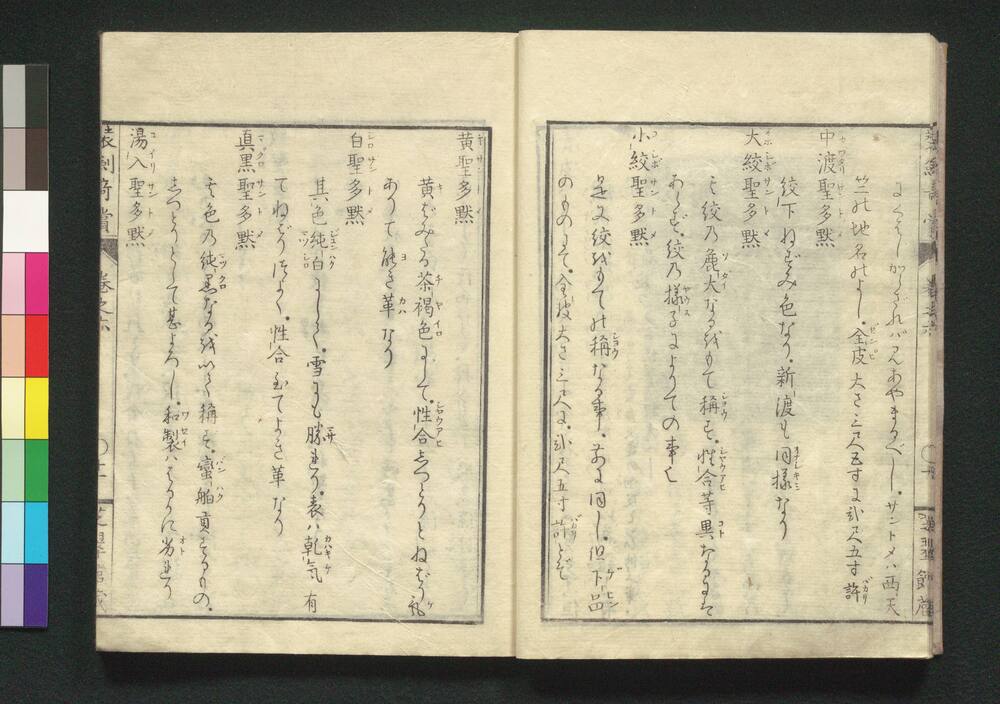 にくはしからざればみあやまるべし。サントメハ西天
竺の地名のよし。全皮大さ三尺五寸に弐尺五寸許
中渡聖多黙
絞下ねずみ色なり。新渡も同様なり
大絞聖多黙
其絞の麁大なるをもて称す。性合等異なるにて
あらず。絞の様子によりての事也
小絞聖多黙
是又絞をもての称なる事。前に同し。但下品
のものにて。全皮大さ三尺に。弐尺五寸許とぞ
黄聖多黙
黄ばみたる茶褐色にして。性合しつとりとねばり気
ありて能き革なり
白聖多黙
其色純白にして。雪にも勝れり。表ハ乾気有
てねばりつよく。性合至てよき革なり
真黒聖多黙
其色の純黒なるを以て称す。蛮舶貢するもの。
しつとりとして甚よろし。和製ハはるかに劣れり
湯入聖多黙
装剣奇賞
巻之六